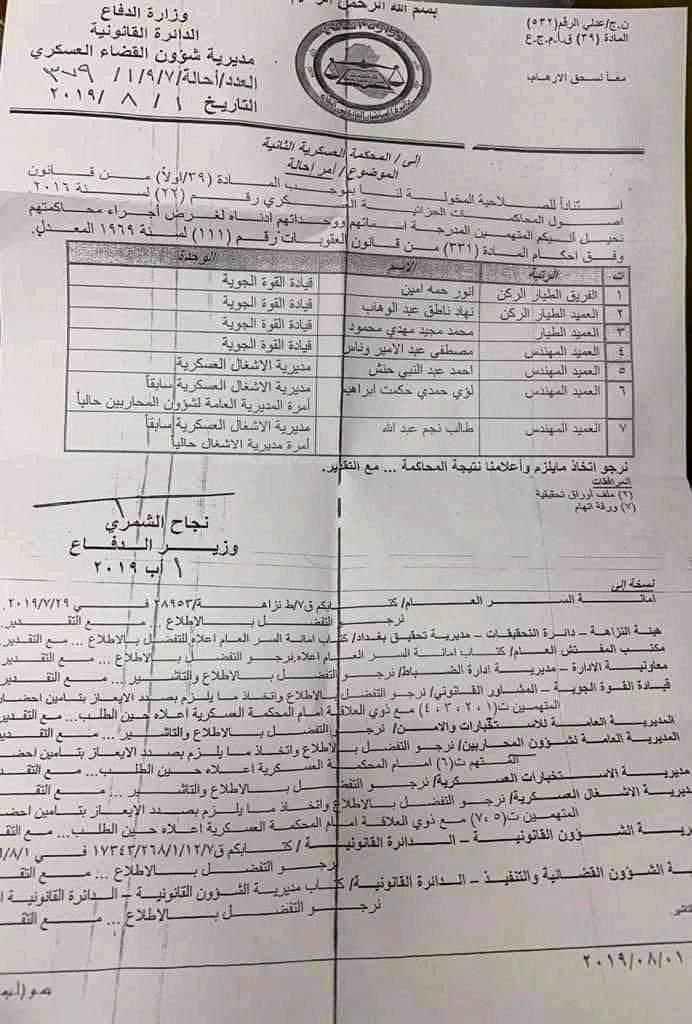 بسم الله الرحمن الرحيم
وزارة الدفاع
الدائرة القانونية
مديرية شؤون القضاء العسكري
العدد/أحالة/١/٩/٧/ ٣٠٩
التاريخ ١ / ٨ / ٢٠١٩
ن.ج/عدلي الرقم(٥٣٢)
المادة (٣٩) ق.أ.م.ج.ع
معاً لسحق الارهاب
إلى/ المحكمة العسكرية الثانية
الموضوع/ أمر إحالة
استناداً للصلاحية المخولة لنا بموجب المادة (٣٩/اولاً) من قانون
اصول المحاكمات الجزائية العسكري رقم (٢٢) لسنة ٢٠١٦
نحيل أليكم المتهمين المدرجة اسمائهم ووحداتهم إدناه لغرض أجراء محاكمتهم
وفق احكام المادة (٣٣١) من قانون العقوبات رقم (١١١) لسنة ١٩٦٩ المعدل.
ت الرتبة الاسم الوحدة
١ الفريق الطيار الركن انور حمه امين قيادة القوة الجوية
٢ العميد الطيار الركن نهاد ناطق عبد الوهاب قيادة القوة الجوية
٣ العميد الطيار محمد مجيد مهدي محمود قيادة القوة الجوية
٤ العميد المهندس مصطفى عبد الامير وناس قيادة القوة الجوية
٥ العميد المهندس احمد عبد النبي حنش مديرية الاشغال العسكرية
٦ العميد المهندس لؤي حمدي حكمت ابراهيم مديرية الاشغال العسكرية سابقاً
أمرة المديرية العامة لشؤون المحاربين حالياً
٧ العميد المهندس طالب نجم عبد الله مديرية الاشغال العسكرية سابقاً
أمرة مديرية الاشغال حالياً
نرجو اتخاذ مايلزم وأعلامنا نتيجة المحاكمة ... مع التقدير.
المرافقات
(٢) ملف أوراق تحقيقية
(٧) ورقة اتهام
نجاح الشمري
وزير الدفاع
١ آب ٢٠١٩
نسخة إلى
امانة السر العام/ كتابكم ق٧/ط نزاهة/٢٨٩٥٣ في ٢٠١٩/٧/٢٩.
نرجو التفضل بالاطلاع ... مع التقدير.
هيئة النزاهة – دائرة التحقيقات – مديرية تحقيق بغداد/ كتاب امانة السر العام اعلاه للتفضل بالاطلاع ... مع التقدير
مكتب المفتش العام/ كتاب امانة السر العام اعلاه نرجو التفضل بالاطلاع ... مع التقدير
معاونية الادارة – مديرية ادارة الضباط/ نرجو التفضل بالاطلاع والتأشير ... مع التقدير
قيادة القوة الجوية – المشاور القانوني/ نرجو التفضل بالاطلاع واتخاذ ما يلزم بصدد الايعاز بتامين احضار
المتهمين ت(١، ٢، ٣، ٤) مع ذوي العلاقة امام المحكمة العسكرية أعلاه حين الطلب... مع التقدير
المديرية العامة للاستخبارات والامن/ نرجو التفضل بالاطلاع والتأشير ... مع التقدير
المديرية العامة لشؤون المحاربين/ نرجو التفضل بالاطلاع واتخاذ ما يلزم بصدد الايعاز بتامين احض
المتهم ت(٦) امام المحكمة العسكرية اعلاه حين الطلب... مع التقد
مديرية الاستخبارات العسكرية/ نرجو التفضل بالاطلاع والتأشير ... مع التقد
مديرية الاشغال العسكرية/ نرجو التفضل بالاطلاع واتخاذ ما يلزم بصدد الايعاز بتامين احض
المتهمين ت(٥، ٧) مع ذوي العلاقة امام المحكمة العسكرية اعلاه حين الطلب... مع التق
رية الشؤون القانونية – الدائرة القانونية / كتابكم ق١٧٣٤٣/٢٦٨/١/١٢/٧ في ٩/٨/١
نرجو التفضل بالاطلاع ... مع التق
ية الشؤون القضائية والتنفيذ – الدائرة القانونية/ كتاب مديرية الشؤون القانونية – الدائرة القانونية ا
نرجو التفضل بالاطلاع ... مع التق
٢٠١٩/٠٨/٠١